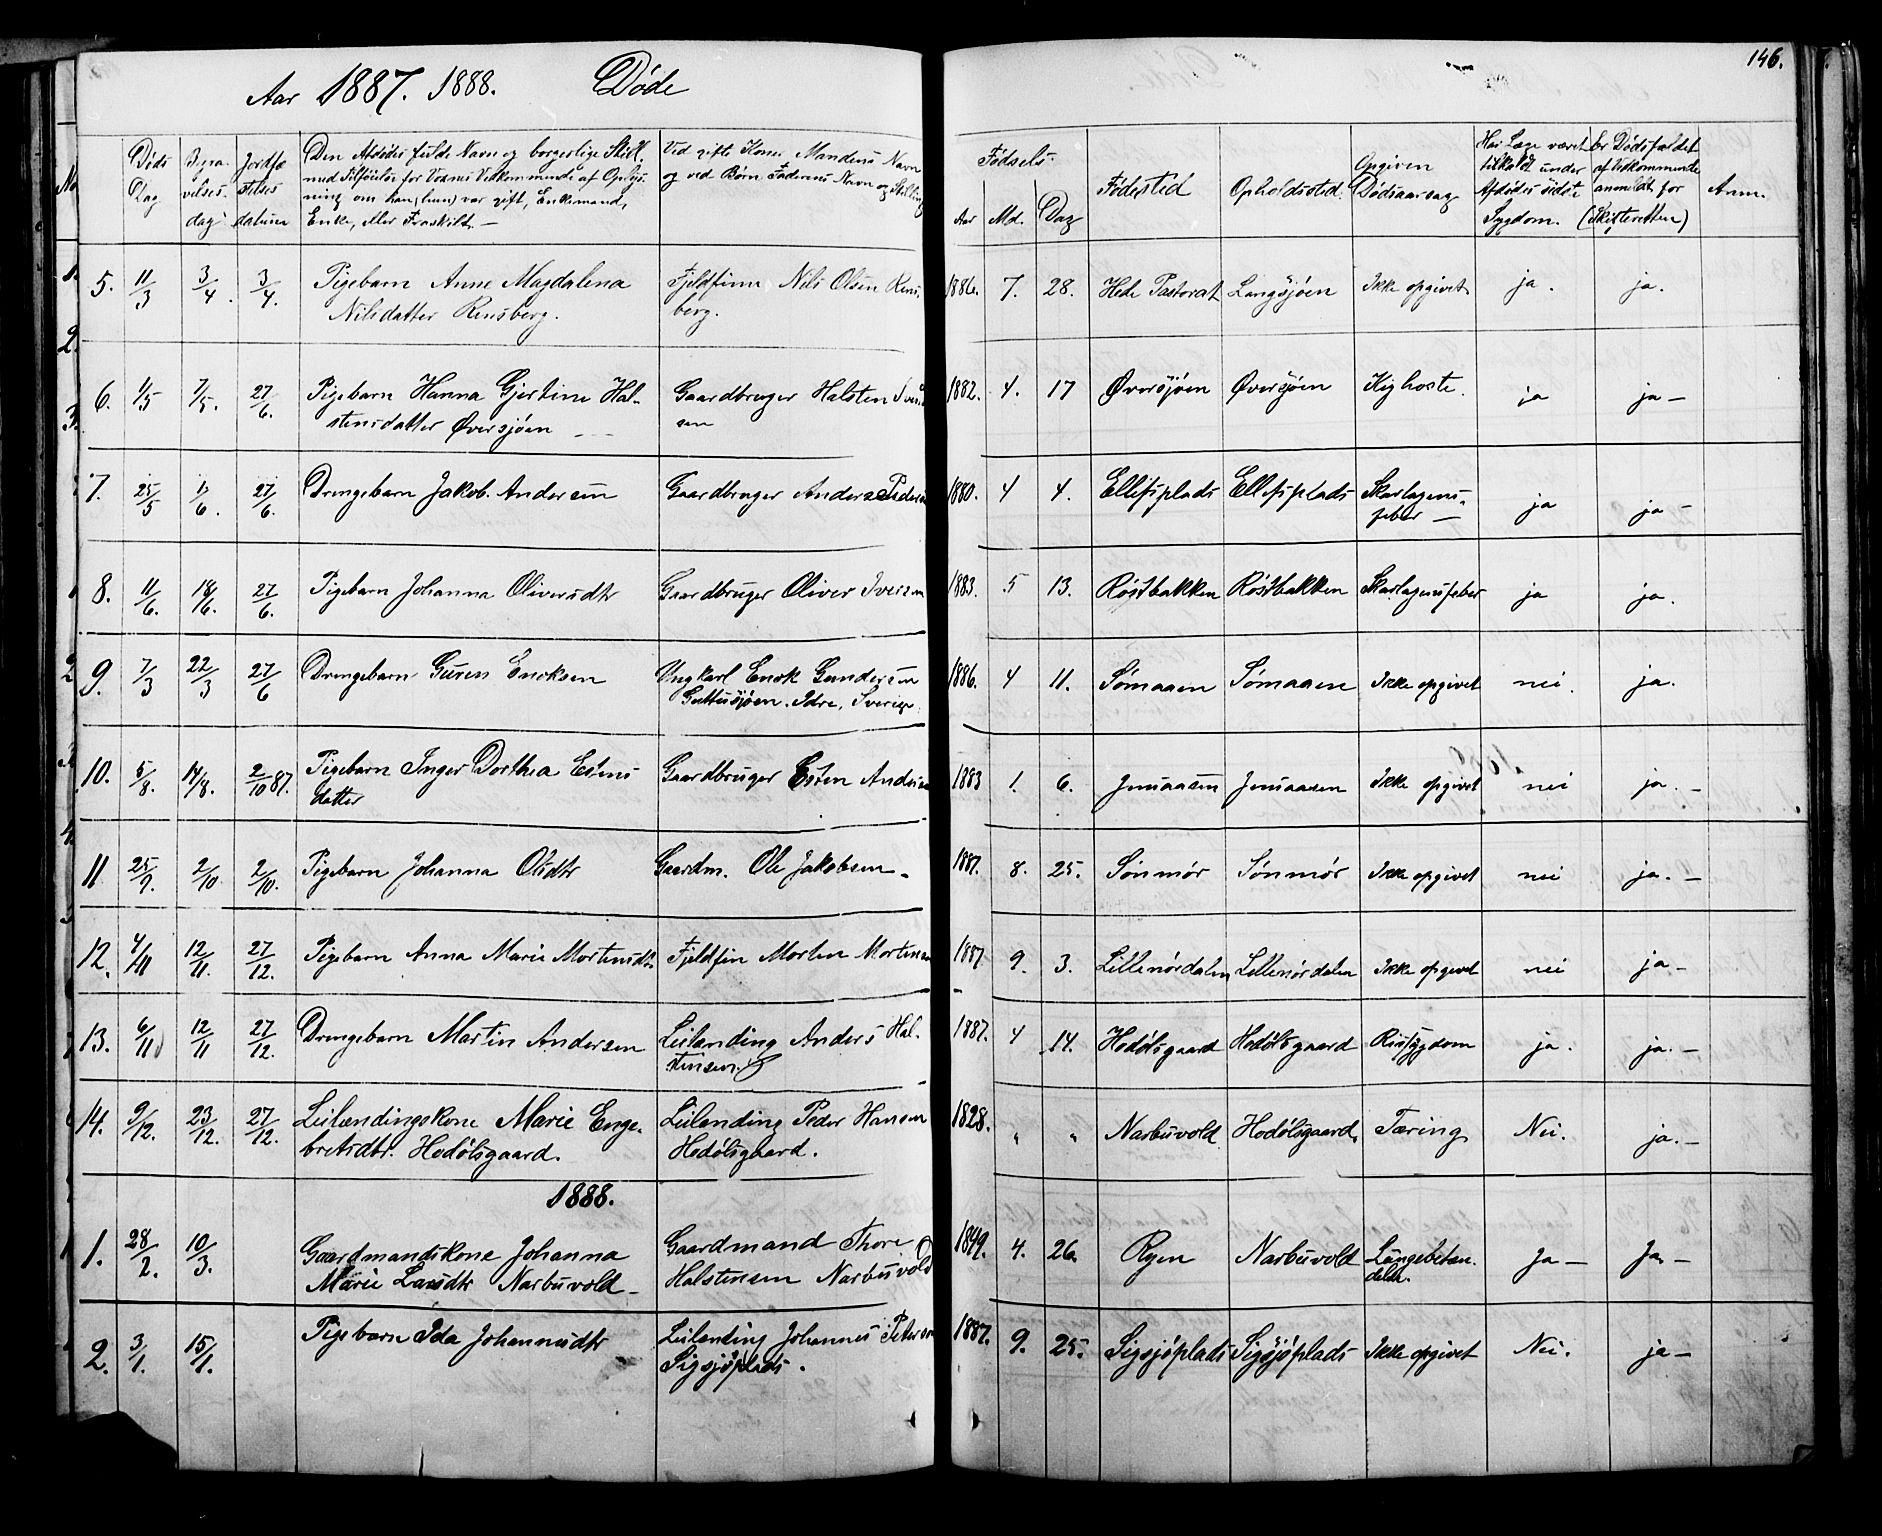 Aar 1887. 1888. Døde
146.
No
Døds Dag
Begravelses dag
Jordfæstelses datum
Den Afdødes fulde Navn og borgerlige Still.
med Tilføielse for Voxnes Vedkommende af Oplys-
ning om han (hun) var gift, Enkemand,
Enke, eller Fraskilt. —
Ved gifte Koner Mandens Navn
og ved Børn Faderens Navn og Stilling
Fødsels-
Aar Md. Dag
Fødested
Opholdssted.
Opgiven Dødsaarsag
Har Læge været tilkaldt under Afdødes sidste Sygdom.
Er Dødsfaldet af Vedkommende anmeldt for (Skifteretten)
Anm.
5. 11/3 3/4. 3/4. Pigebarn Anne Magdalena Fjeldfinn Nils Olsen Rens- 1886. 7. 28. Hede Pastorat Langsjøen Ikke opgivet ja. ja.
Nilsdatter Rensberg. berg.
6. 1/5 7/5. 27/6. Pigebarn Hanna Gjertine Hal- Gaardbruger Halsten Iver 1882. 4. 17 Øversjøen Øversjøen Kighoste. ja ja —
stensdatter Øversjøen — sen
7. 25/5 1/6. 27/6. Drengebarn Jakob Andersen Gaardbruger Anders Peders 1880. 4 4. Ellefsplads Ellefsplads Skarlagens- ja ja —
feber —
8. 11/6. 18/6. 27/6. Pigebarn Johanna Oliversdtr Gaardbruger Oliver Iversen 1883. 5 13. Røstbakken Røstbakken Skarlagensfeber ja ja.
9. 7/3 22/3 27/6 Drengebarn Gøren Enoksen Ungkarl Enok Gundersen 1886. 4 11. Sømaaen Sømaaen Ikke opgivet nei. ja.
Guttusjøen. Idre, Sverige.
10. 5/8. 14/8. 2/10 87. Pigebarn Inger Dorthea Estens Gaardbruger Esten Andersen 1883 1. 6. Jensaasen Jensaasen Ikke opgivet nei ja. —
datter
11 25/9. 2/10 2/10. Pigebarn Johanna Olsdtr Gaardm. Ole Jakobsen. 1887. 8. 25. Sønmør Sønmør Ikke opgivet nei ja. —
12. 4/11 12/11. 27/12. Pigebarn Anna Marie Mortensdtr. Fjeldfin Morten Mortensen 1887. 9. 3. Lillenørdalen Lillenørdalen Ikke opgivet nei ja —
13. 6/11 12/11 27/12. Drengebarn Martin Andersen Leilænding Anders Hal- 1887. 4 14. Hodølsgaard Hodølsgaard Rissygdom ja. ja. —
stensen.
14. 9/12. 23/12. 27/12. Leilændingskone Marie Enge- Leilænding Peder Hansen 1828. " " Narbuvold Hodølsgaard. Tæring Nei. ja. —
bretsdtr. Hodølsgaard. Hodølsgaard.
1888.
1. 28/2. 10/3. Gaardmandskone Johanna Gaardmand Thore 1849. 4. 26 Ryen Narbuvold Lungebetæn- Ja — Ja —
Marie Larsdtr Narbuvold — Halstensen Narbuvold delse.
2. 3/1. 15/1. Pigebarn Ida Johannesdtr Leilænding Johannes Petersen 1887. 9. 25. Sigsjøplads Sigsjøplads Ikke opgivet Nei. ja —
Sigsjøplads.